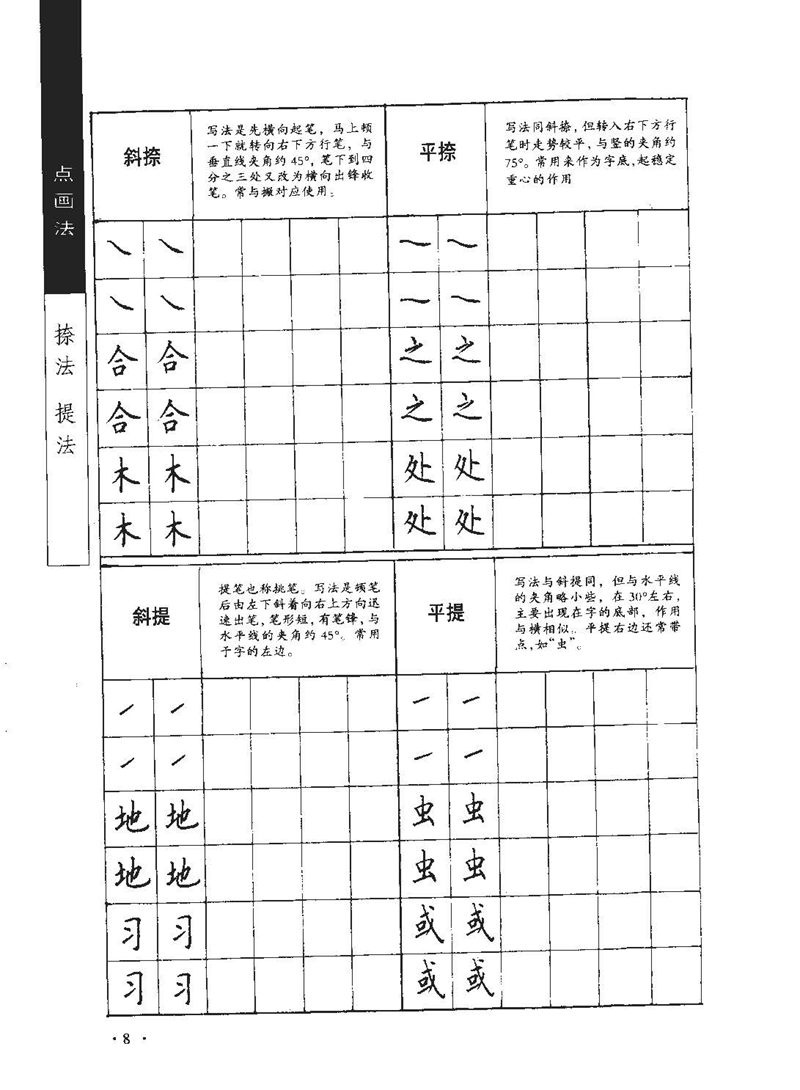 点画法
捺法 提法
斜捺
写法是先横向起笔，马上顿
一下就转向右下方行笔，与
垂直线夹角约45°，笔下到四
分之三处又改为横向出锋收
笔。常与撇对应使用。
平捺
写法同斜捺，但转入右下方行
笔时走势较平，与竖的夹角约
75°。常用来作为字底，起稳定
重心的作用
㇏ ㇏ ㇏ ㇏
㇏ ㇏ ㇏ ㇏
合 合 之 之
合 合 之 之
木 木 处 处
木 木 处 处
斜提
提笔也称挑笔。写法是顿笔
后由左下斜着向右上方向迅
速出笔，笔形短，有笔锋，与
水平线的夹角约45°。常用
于字的左边。
平提
写法与斜提同，但与水平线
的夹角略小些，在30°左右，
主要出现在字的底部，作用
与横相似。平提右边还常带
点，如“虫”。
㇀ ㇀ ㇀ ㇀
㇀ ㇀ ㇀ ㇀
地 地 虫 虫
地 地 虫 虫
习 习 或 或
习 习 或 或
·8·